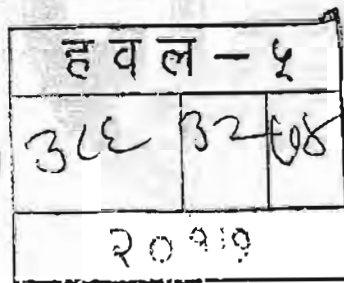 हवल - ५
३८६ ३२ ७४
२०१७